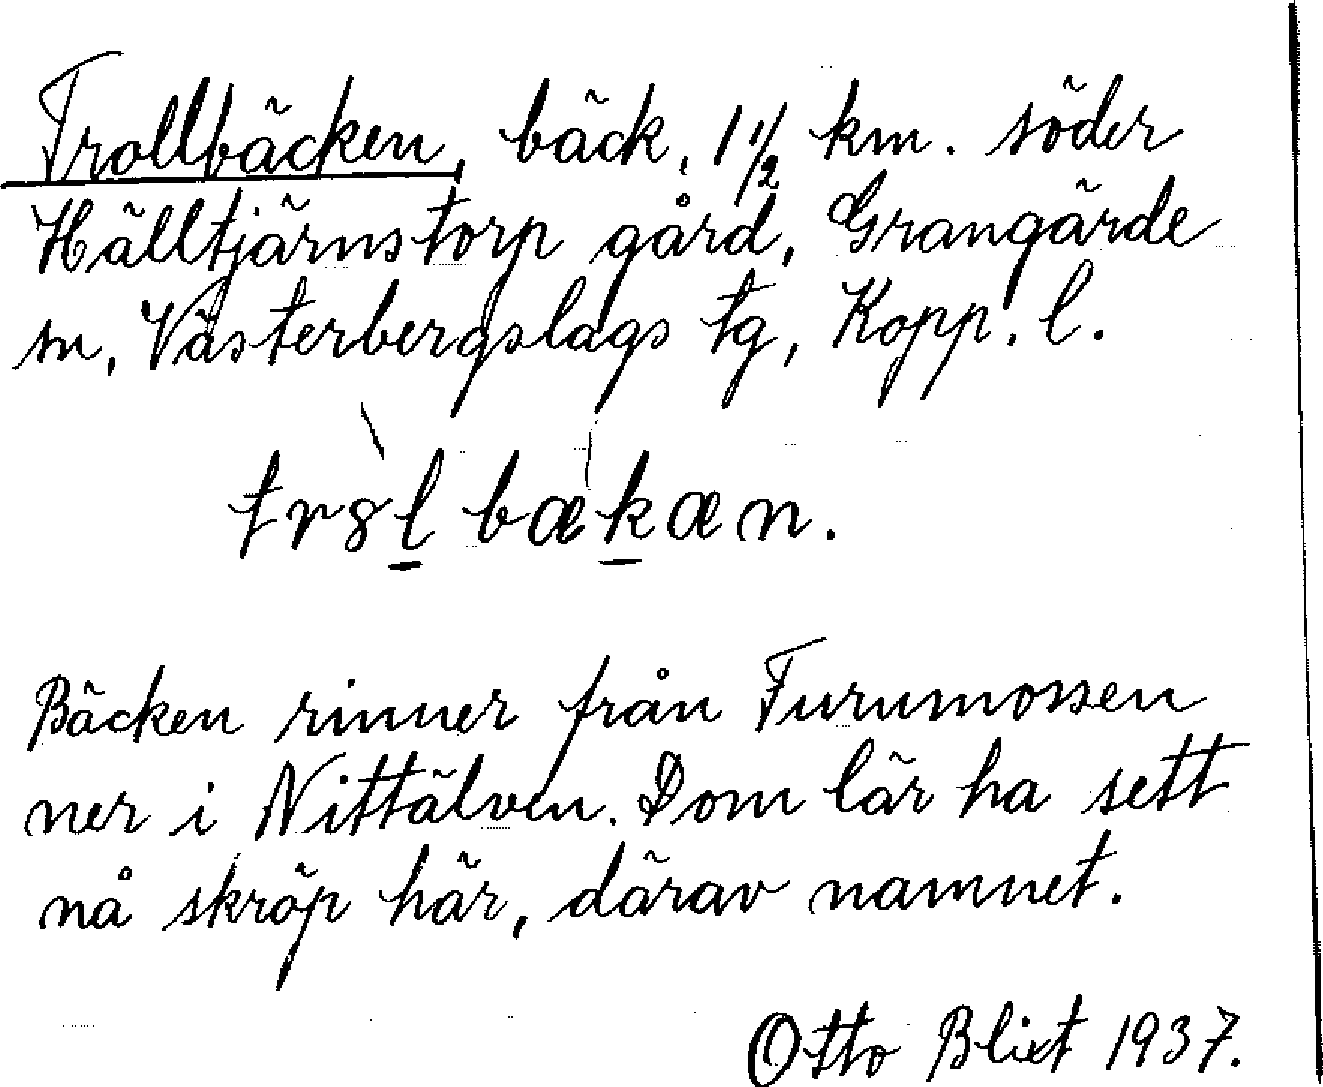 Trollbäcken, bäck, 1 1/2 km. söder
Hälltjärnstorp gård, Grangärde
sn, Västerbergslags tg, Kopp. l.
tr8l bækæn.
Bäcken rinner från Furumossen
ner i Nittälven. Dom lär ha sett
nå skröp här, därav namnet.
Otto Blixt 1937.